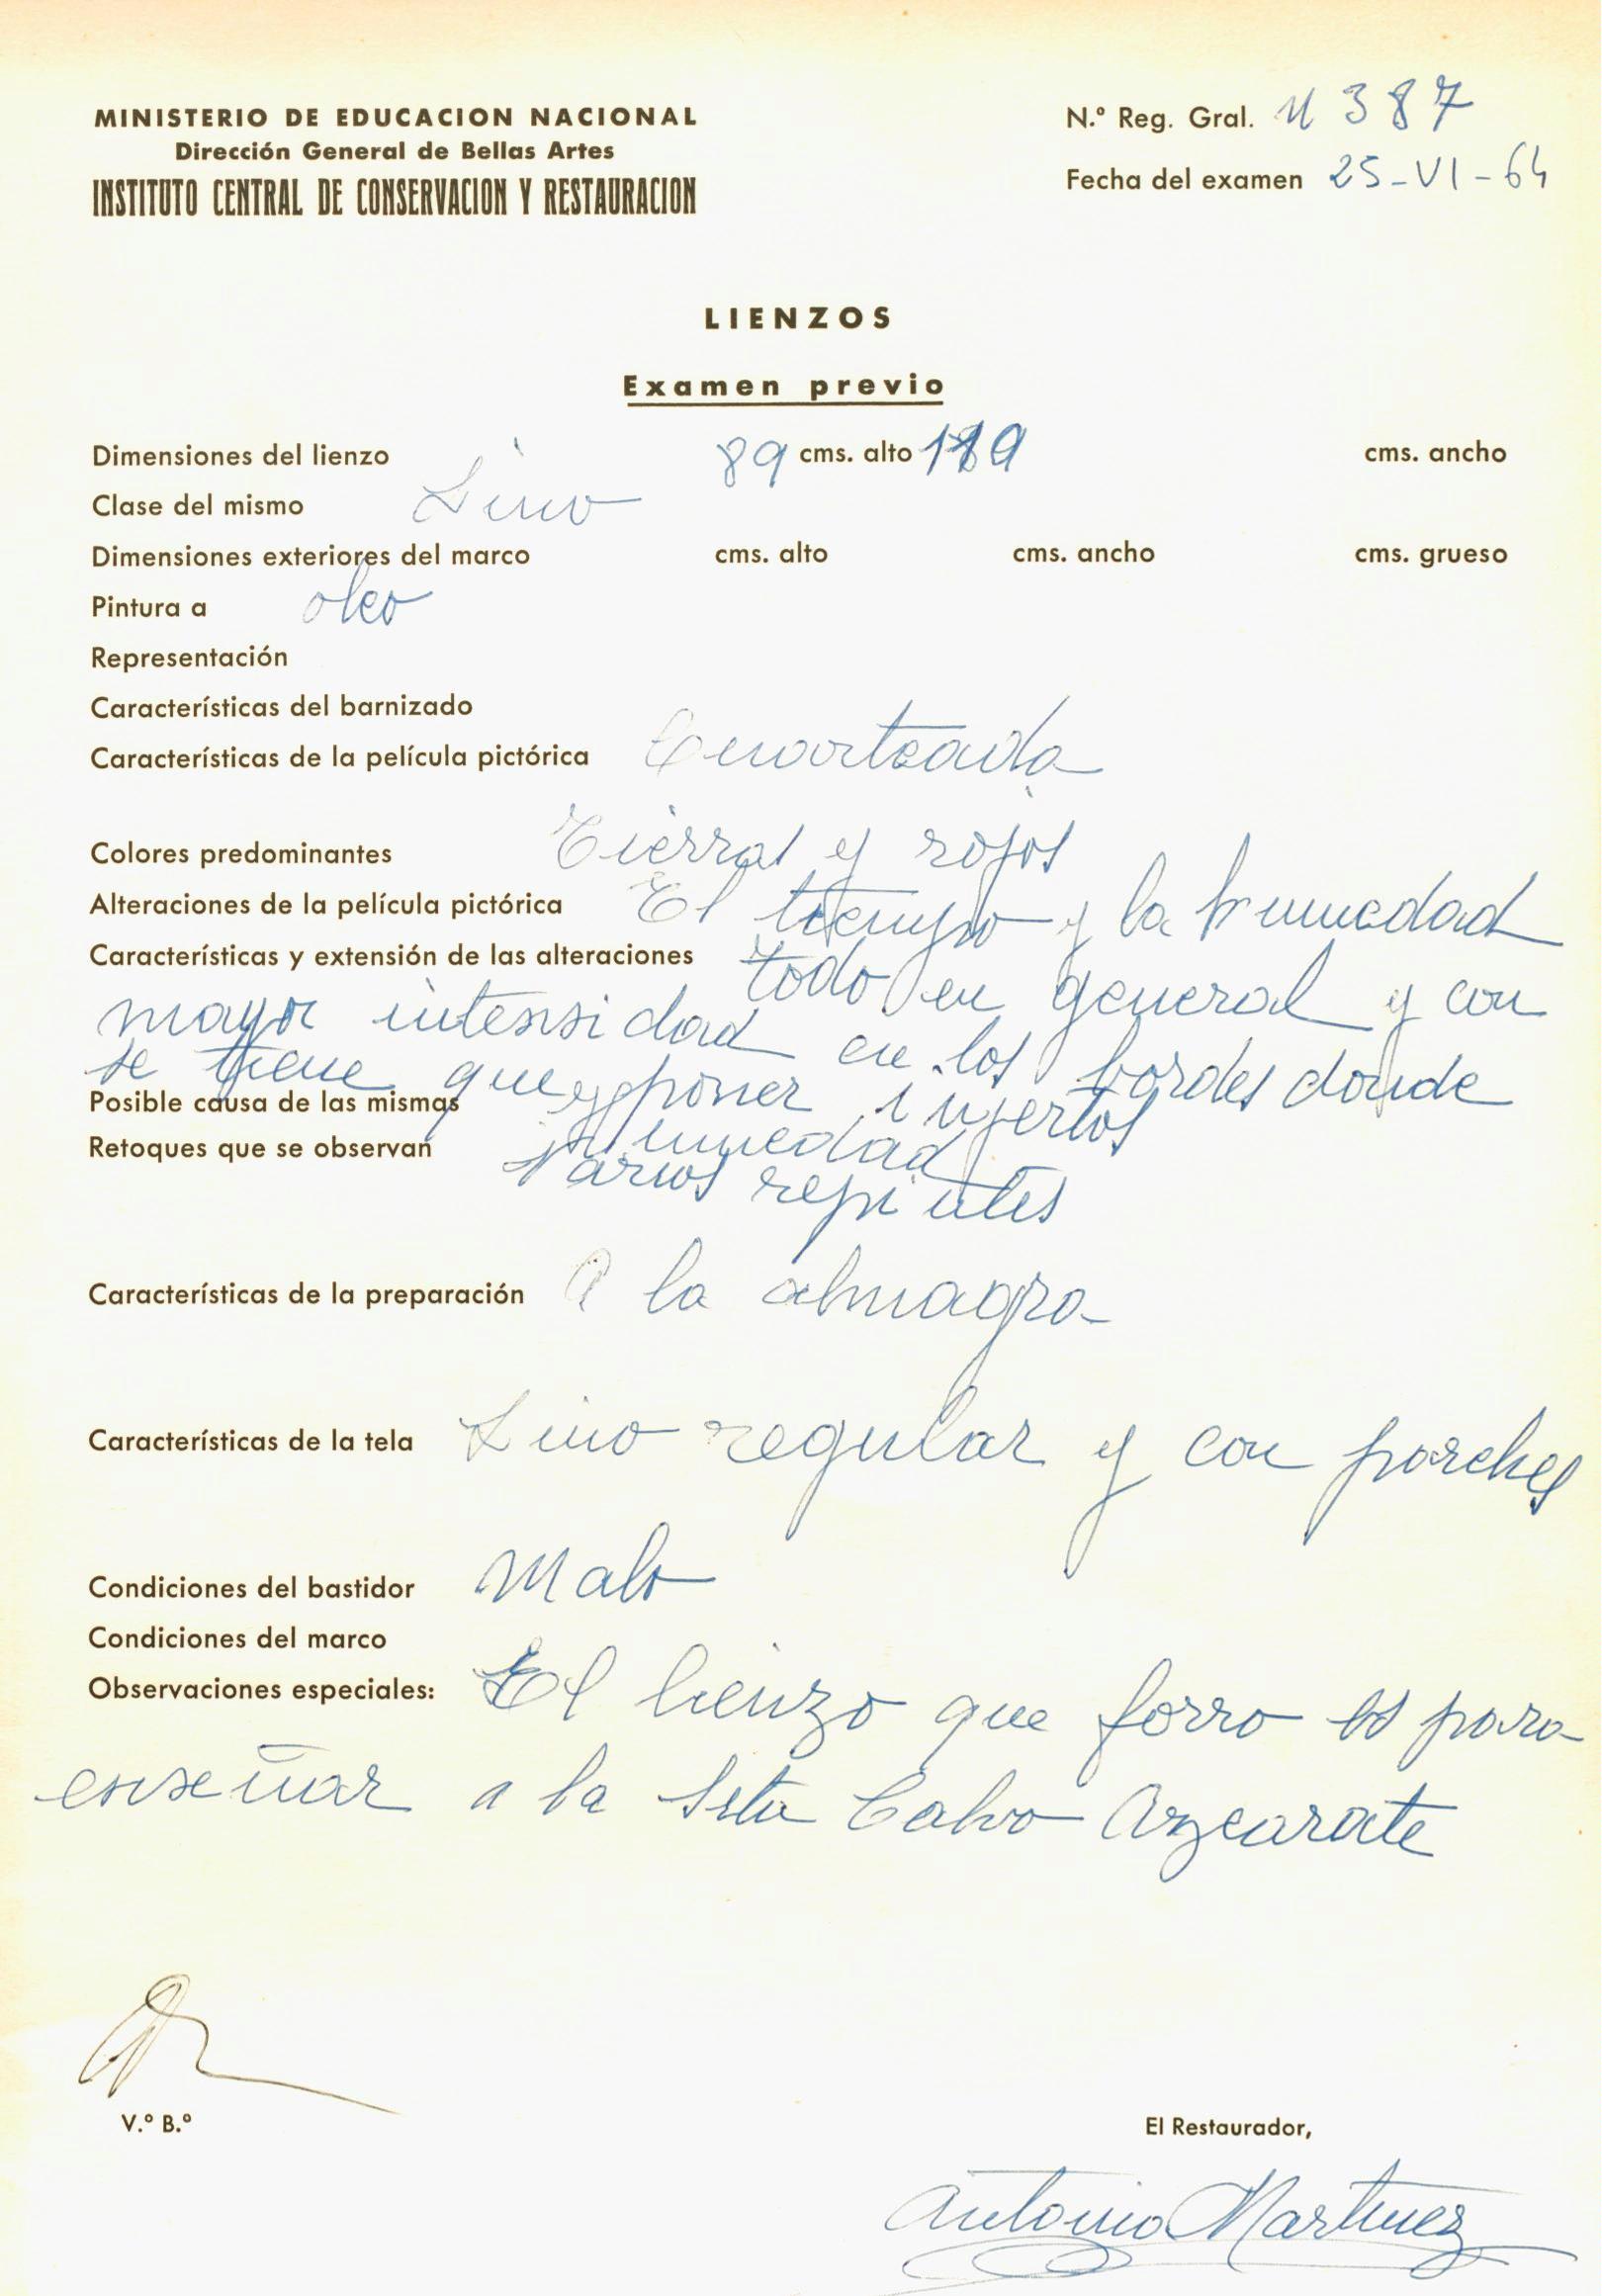 MINISTERIO DE EDUCACION NACIONAL
Dirección General de Bellas Artes
INSTITUTO CENTRAL DE CONSERVACION Y RESTAURACION
N.º Reg. Gral. M 387
Fecha del examen 25-VI-64
LIENZOS
Examen previo
Dimensiones del lienzo 89 cms. alto cms. ancho
Clase del mismo Lino
Dimensiones exteriores del marco cms. alto cms. ancho cms. grueso
Pintura a oleo
Representación
Características del barnizado
Características de la película pictórica Cuarteada
Colores predominantes Tierras y rojos
Alteraciones de la película pictórica El tiempo y la humedad
Características y extensión de las alteraciones todo en general y con
mayor intensidad en los bordes donde
se tiene que poner injertos
Posible causa de las mismas humedad
Retoques que se observan Varios repintes
Características de la preparación A la almagra
Características de la tela Lino regular y con parches
Condiciones del bastidor Malo
Condiciones del marco
Observaciones especiales: El lienzo que forro es para
enseñar a la Srta Calvo Azcarate
V.º B.º
El Restaurador,
Antonio Martinez